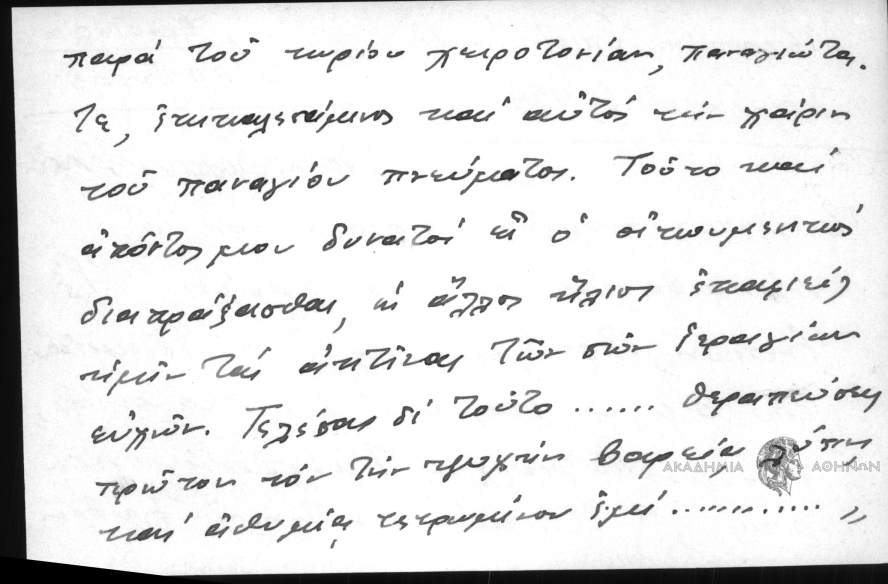 παρά τοῦ κυρίου χειροτονίαν, παναγιώτα.
τε, ἐπικαλεσάμενος καί αὐτός τήν χάριν
τοῦ παναγίου πνεύματος. Τοῦτο καί
ἀπόντος μου δυνατός εἶ ὁ οἰκουμενικός
διαπράξασθαι, ὡς ἄλλος ἥλιος ἐπαφιείς
ἡμῖν τάς ἀκτῖνας τῶν σῶν ἱεραγίων
εὐχῶν. Τελέσας δέ τοῦτο ...... θεραπεύσεις
πρῶτον τόν τήν ψυχήν βαρείᾳ λύπῃ
καί ἀθυμίᾳ τετρωμένον ἐμέ ............ „
ΑΚΑΔΗΜΙΑ ΑΘΗΝΩΝ